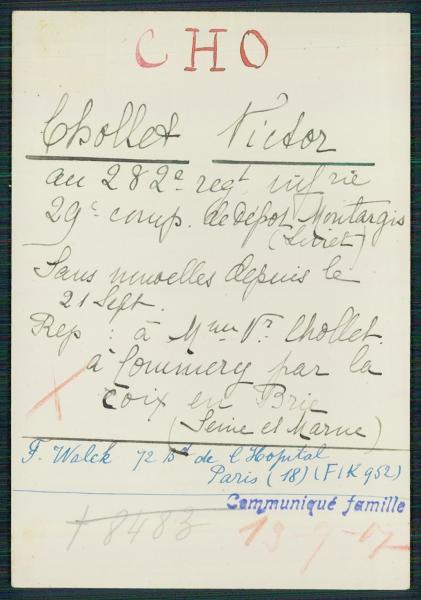 CHO
Chollet Victor
au 282e regt infrie
29e comp. de dépot Montargis
(Loiret)
Sans nouvelles depuis le
21 Sept.
Rep : à Mme Ve Chollet
à Gommery par la
Croix en Brie
(Seine et Marne)
F. Walck 72 Bd de l'Hopital
Paris (18) (F/K 952)
Communiqué famille
+ 8483 13-9-17